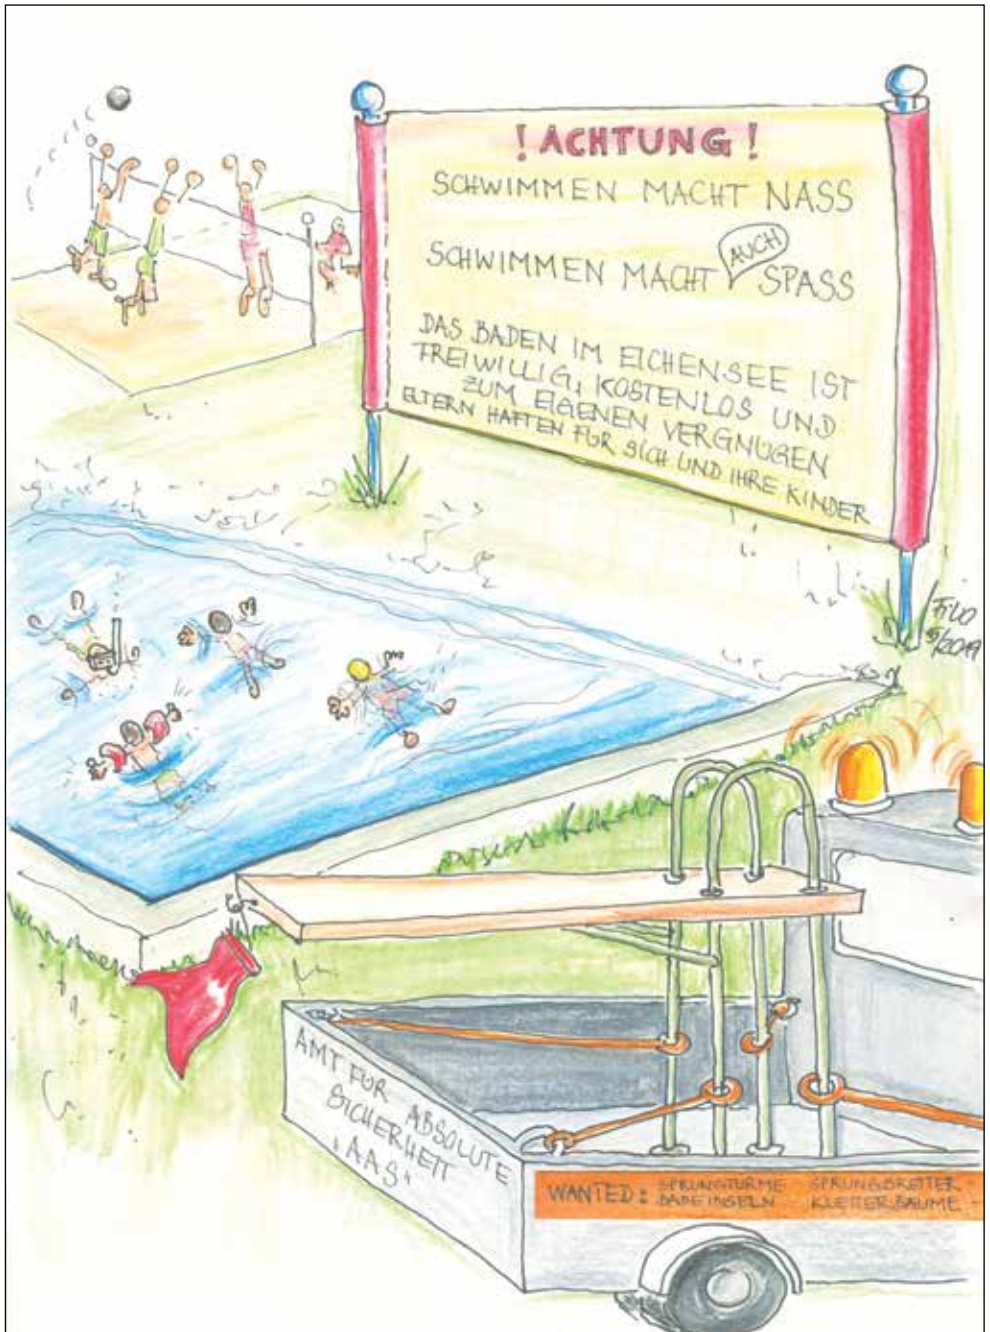 ! ACHTUNG !
SCHWIMMEN MACHT NASS
SCHWIMMEN MACHT AUCH SPASS
DAS BADEN IM EICHENSEE IST
FREIWILLIG, KOSTENLOS UND
ZUM EIGENEN VERGNÜGEN
ELTERN HAFTEN FÜR SICH UND IHRE KINDER
FiLO
9/2019
AMT FÜR ABSOLUTE
SICHERHEIT
"AAS"
WANTED: SPRUNGTÜRME SPRUNGBRETTER
BADEINSELN KLETTERBÄUME